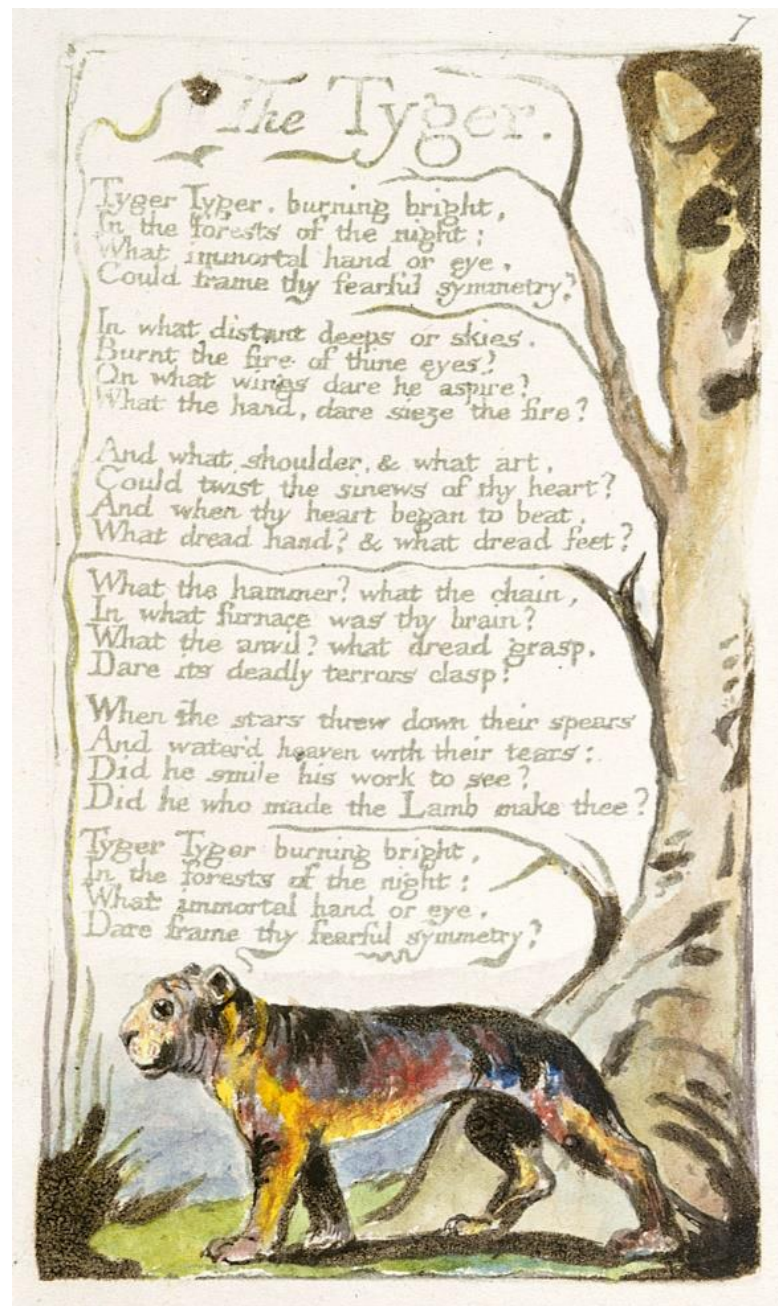 7
The Tyger.
Tyger Tyger, burning bright,
In the forests of the night:
What immortal hand or eye,
Could frame thy fearful symmetry?
In what distant deeps or skies.
Burnt the fire of thine eyes?
On what wings dare he aspire?
What the hand, dare sieze the fire?
And what shoulder, & what art,
Could twist the sinews of thy heart?
And when thy heart began to beat,
What dread hand? & what dread feet?
What the hammer? what the chain,
In what furnace was thy brain?
What the anvil? what dread grasp,
Dare its deadly terrors clasp!
When the stars threw down their spears
And water'd heaven with their tears:
Did he smile his work to see?
Did he who made the Lamb make thee?
Tyger Tyger burning bright,
In the forests of the night:
What immortal hand or eye,
Dare frame thy fearful symmetry?